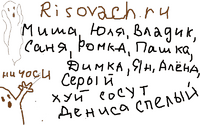 Risovach.ru
Миша, Юля, Владик,
Саня, Ромка, Пашка,
Димка, Ян, Алёна,
Серый
ничоси
хуй сосут
Дениса спелый